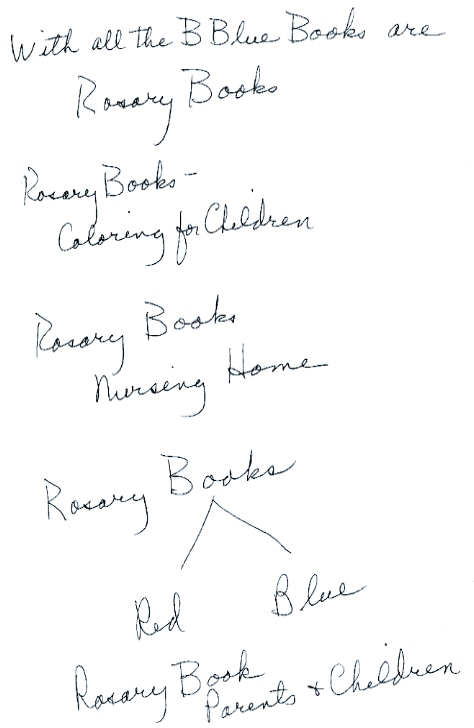 With all the B Blue Books are
Rosary Books
Rosary Books -
Coloring for Children
Rosary Books
Nursing Home
Rosary Books
Red Blue
Rosary Book
Parents + Children